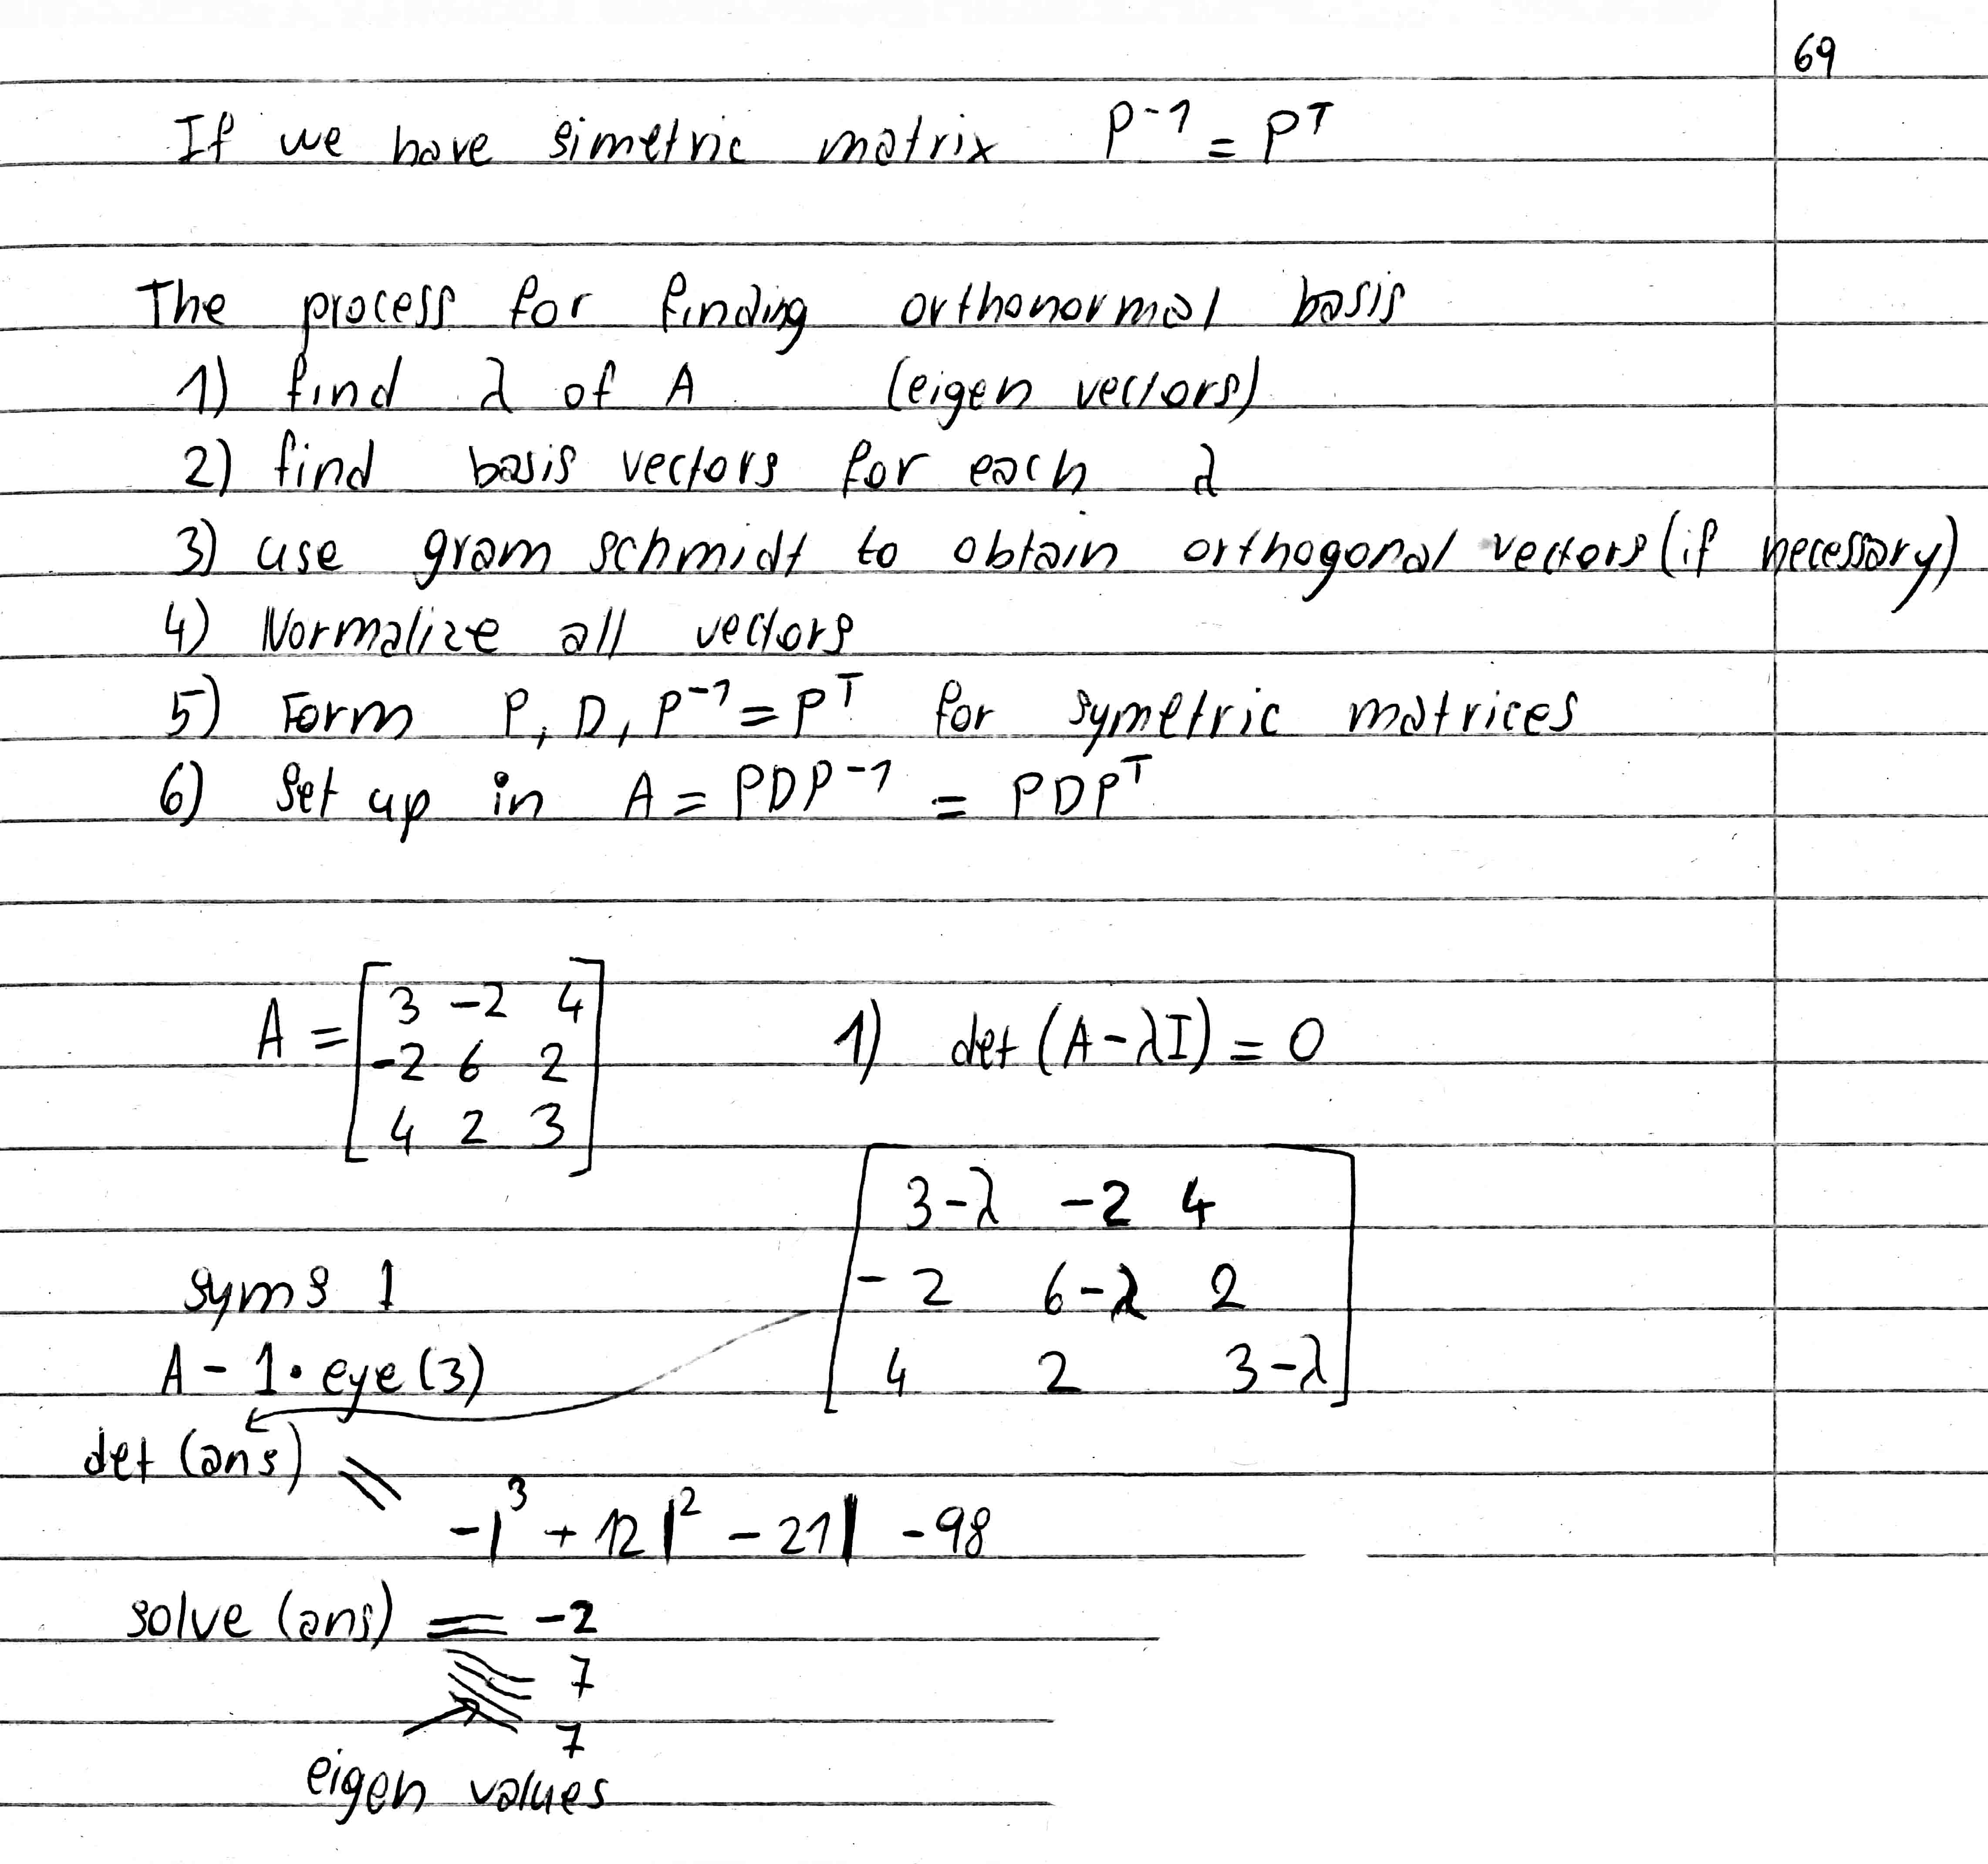 69
If we have simetric matrix P⁻¹ = Pᵀ
The process for finding orthonormal basis
1) find λ of A (eigen vectors)
2) find basis vectors for each λ
3) use gram schmidt to obtain orthogonal vectors (if necessary)
4) Normalize all vectors
5) Form P, D, P⁻¹ = Pᵀ for symetric matrices
6) Set up in A = PDP⁻¹ = PDPᵀ
A = [3 -2 4
-2 6 2
4 2 3]
1) det (A - λI) = 0
[3-λ -2 4
-2 6-λ 2
4 2 3-λ]
syms l
A - l • eye (3)
det (ans) =
-l³ + 12 l² - 21 l - 98
solve (ans) = -2
7
7
eigen values